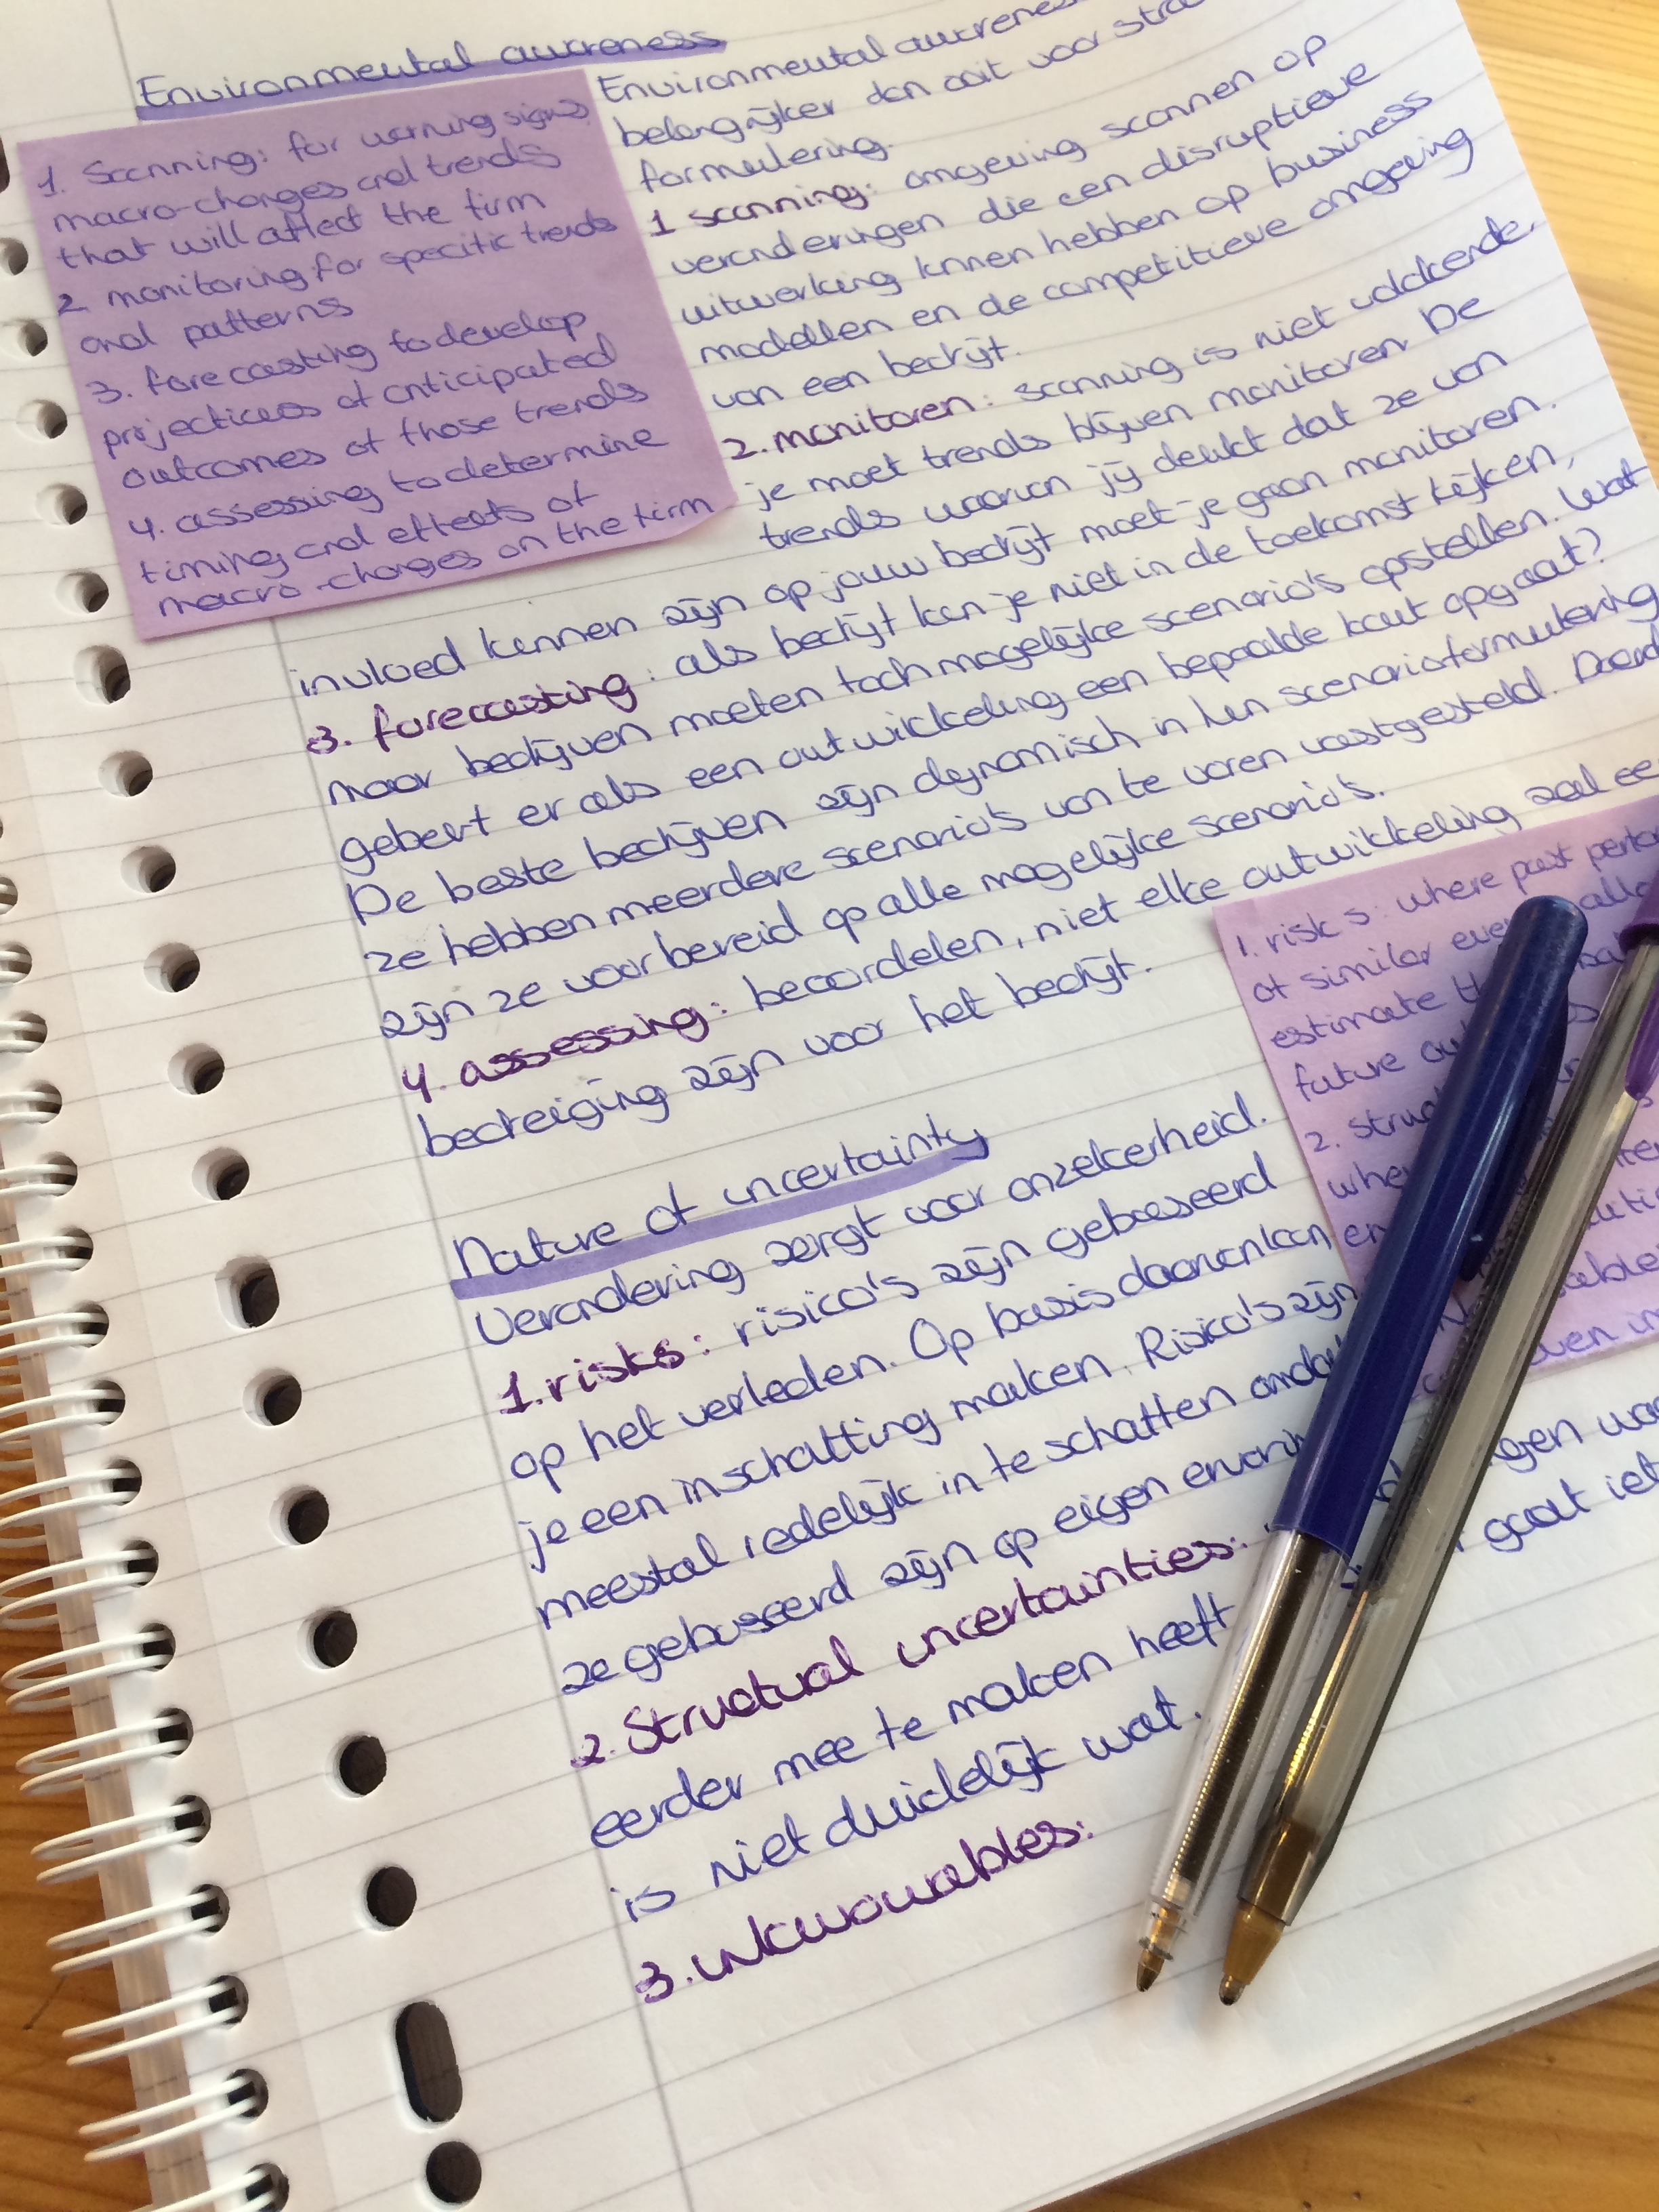 Environmental awareness
1. Scanning: for warning signs
macro-changes and trends
that will affect the firm
2. monitoring for specific trends
and patterns
3. forecasting to develop
projections of anticipated
outcomes of those trends
4. assessing to determine
timing and effects of
macro-changes on the firm
Environmental awareness
belangrijker dan ooit voor
formulering.
1 scanning: omgeving scannen op
veranderingen die een disruptieve
uitwerking knnen hebben op business
modellen en de competitieve omgeving
van een bedrijf.
2. monitoren: scanning is niet voldoende,
je moet trends blijven monitoren De
trends waarvan jij denkt dat ze van
invloed kunnen zijn op jouw bedrijf moet je gaan monitoren.
3. forecasting: als bedrijf kan je niet in de toekomst kijken,
maar bedrijven moeten toch mogelijke scenario's opstellen. Wat
gebeurt er als een ontwikkeling een bepaalde kant opgaat?
De beste bedrijven zijn dynamisch in hun scenarioformulering
ze hebben meerdere scenario's van te voren vastgesteld.
zijn ze voorbereid op alle mogelijke scenario's.
4. assessing: beoordelen, niet elke ontwikkeling zal
bedreiging zijn voor het bedrijf.
1. risks: where past
of similar
estimate
future
2.
Nature of uncertainty
Verandering zorgt voor onzekerheid.
1. risks: risico's zijn gebaseerd
op het verleden. Op basis daarvan kan
je een inschatting maken. Risico's zijn
meestal redelijk in te schatten
ze gebaseerd zijn op eigen
2. Structural uncertainties:
eerder mee te maken heeft gaat
is niet duidelijk wat.
3. unkwowables: